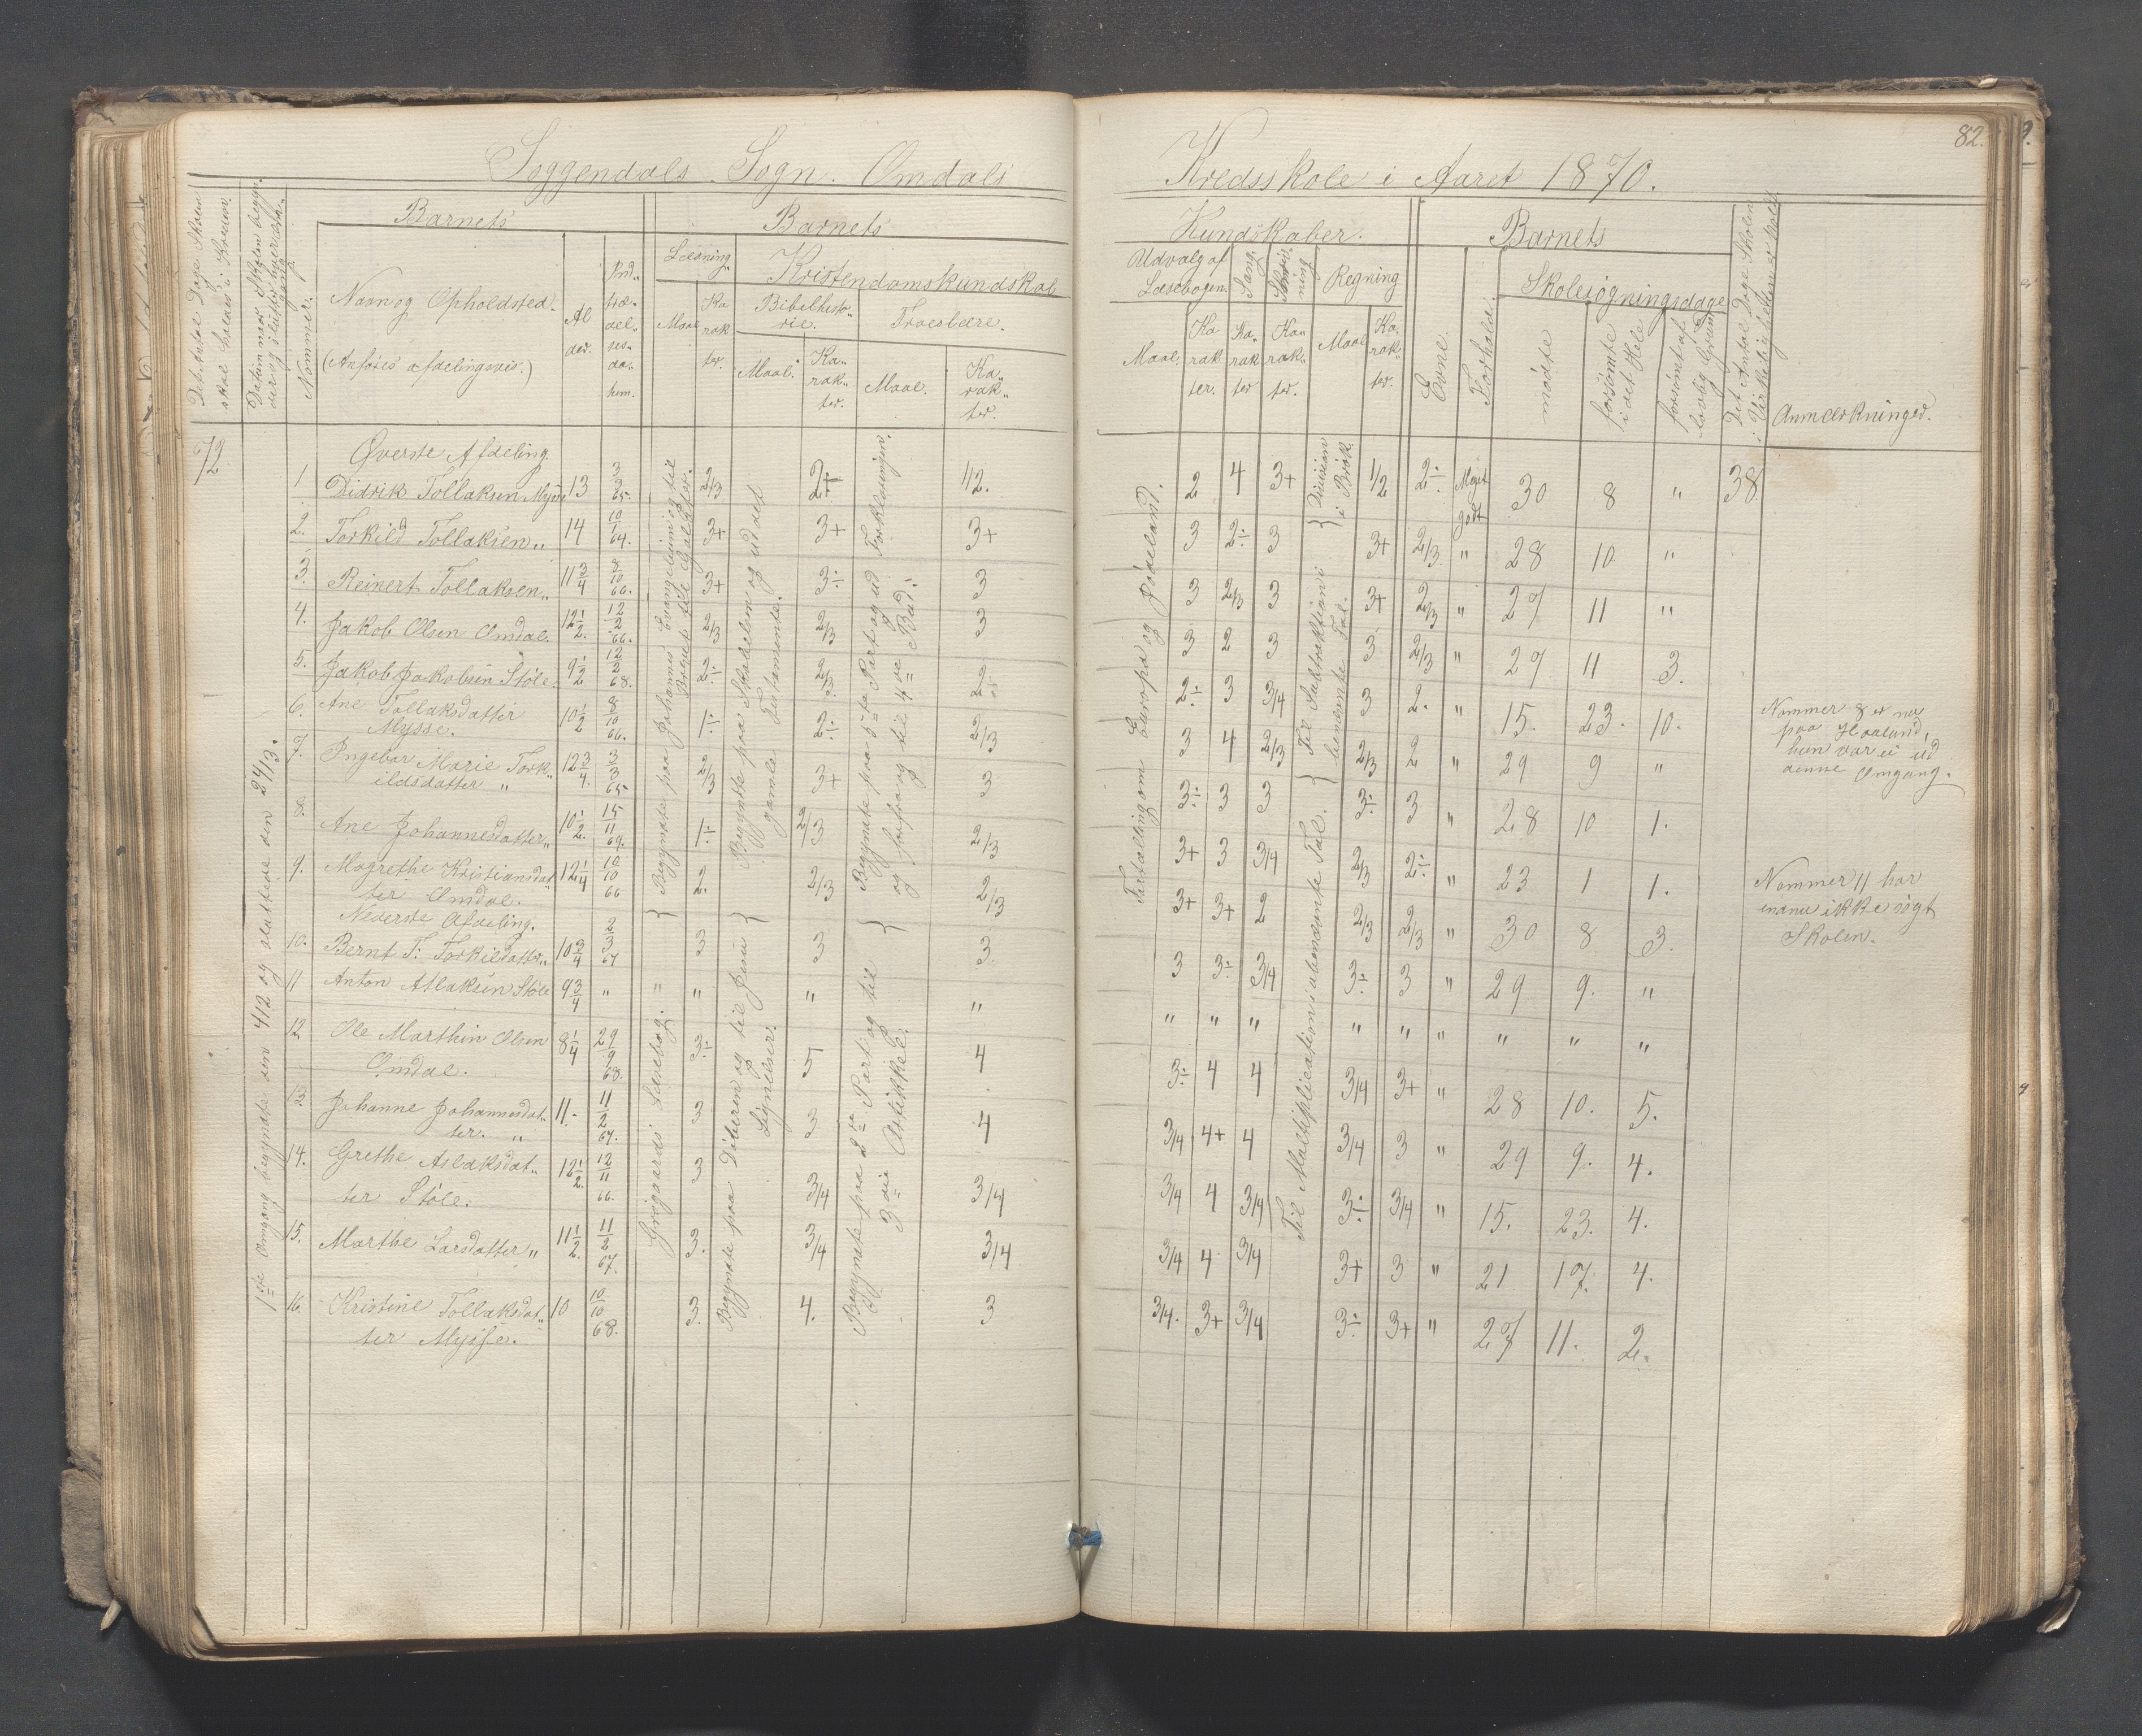 82.
Soggendals Sogn. Omdals Kredsskole i Aaret 1870.
Det Antal Dage Skolen skal holdes i Kredsen.
Datum naar Skolen begyn-
der og slutter hver Omgang.
Nommer.
Barnets
Navn og Opholdsted.
(Anføres afdelingsvis.)
Al
der.
Ind-
træ-
del-
ses-
da-
tum.
Barnets Kundskaber.
Læsning
Maal
Ka
rak
ter.
Kristendomskundskab
Bibelhisto-
rie.
Maal.
Ka-
rak-
ter.
Troeslære.
Maal.
Ka-
rak-
ter.
Udvalg af
Læsebogen.
Maal.
Ka
rak
ter.
Sang.
Ka-
rak
ter
Skriv-
ning
Ka-
rak-
ter.
Regning
Maal
Ka-
rak-
ter.
Barnets
Evne.
Forhold.
Skolesøgningsdage
mødte
forsömte
i det Hele
forsömt af
lovlig Grund
Det Antal Dage Skolen
i Virkeligheden er holdt
Anmærkninger.
72.
1ste Omgang begyndte den 4/12 og sluttede den 24/3.
Øverste Afdeling.
1 Didrik Tollaksen Mysse 13 3/3 65. 2/3 2÷ 1/2. 2 4 3+ 1/2 2÷ Meget godt 30 8 " 38
2. Torkild Tollaksen " 14 10/1 64. 3+ 3+ 3+ 3 2÷ 3 3+ 2/3 " 28 10 "
3. Reinert Tollaksen " 11 3/4 8/10 66. 3+ 3÷ 3 3 2/3 3 3+ 2/3 " 27 11 "
4. Jakob Olsen Omdal. 12 1/2. 12/2 66. 2/3 2/3 3 3 2 3 3 2/3 " 27 11 3.
5. Jakob Jakobsen Stöle. 9 1/2 12/2 68. 2÷ 2/3 2÷ 2÷ 3 3/4 3 2. " 15. 23. 10.
6. Ane Tollaksdatter
Mysse. 10 1/2 8/10 66. 1÷ 2÷ 2/3 3 4 2/3 2/3 2 " 29 9 "
7. Ingebor Marie Tork-
ildsdatter " 12 3/4. 3/3 65. 2/3 3+ 3 3÷ 3 3 3÷ 3 " 28 10 1.
8. Ane Johannesdatter " 10 1/2. 15/11 69. 1÷ 2/3 2/3 3+ 3 3/4 2/3 2÷ " 23 1 1.
9. Magrethe Kristiansdat-
ter Omdal. 12 1/4 10/10 66 2. 2/3 2/3 3+ 3+ 2 2/3 2/3 " 30 8 3.
Nederste Afdeling.
10. Bernt T: Torkildatter " 10 3/4 2/3 67 3 3 3. 3 3÷ 3/4 3÷ 3 " 29 9. "
11 Anton Atlaksen Stöle 9 3/4 " " " " " " " " " " " " " "
12 Ole Marthin Olsen
Omdal. 8 1/4 29/9 68. 3÷ 5 4 3÷ 4 4 3/4 3+ " 28 10. 5.
13. Johanne Johannesdat-
ter. " 11- 11/2 67. 3 3 4 3/4 4+ 4 3/4 3 " 29 9. 4.
14. Grethe Aslaksdat-
ter Stöle. 12 1/2. 12/11 66. 3 3/4 3/4 3/4 4 3/4 3÷ 3/4 " 15. 23. 4.
15. Marthe Larsdatter " 11 1/2. 11/2 67. 3. 3/4 3/4 3/4 4 3/4 3+ 3 " 21 17. 4.
16. Kristine Tollaksdat-
ter Mysse. 10 10/10 68. 3. 4. 3 3/4. 3+ 3/4 3÷ 3+ " 27 11. 2.
Begyndte paa Johannes Evangelium og til
Brevet til Galater.
Grögaards Læsebog.
Begyndte paa Skabelsen og ud det
gamle Testamente.
Begyndte paa Döberen og til Jesu
Lignelser.
Begyndte paa 5te Part og ud Forklaringen.
og forfra og til 4de Bud.
Begyndte paa 2den Part og til
3die Artikkel.
Fortælling om Europa og Jödeland.
Division
i Brök.
Til Subtraktion i
benævnte Tal.
Til Multiplication i ubenævnte Tal.
Nommer 8 er nu
paa Haaland,
hun var ei ud
denne Omgang.
Nommer 11 har
endnu ikke sögt
Skolen.